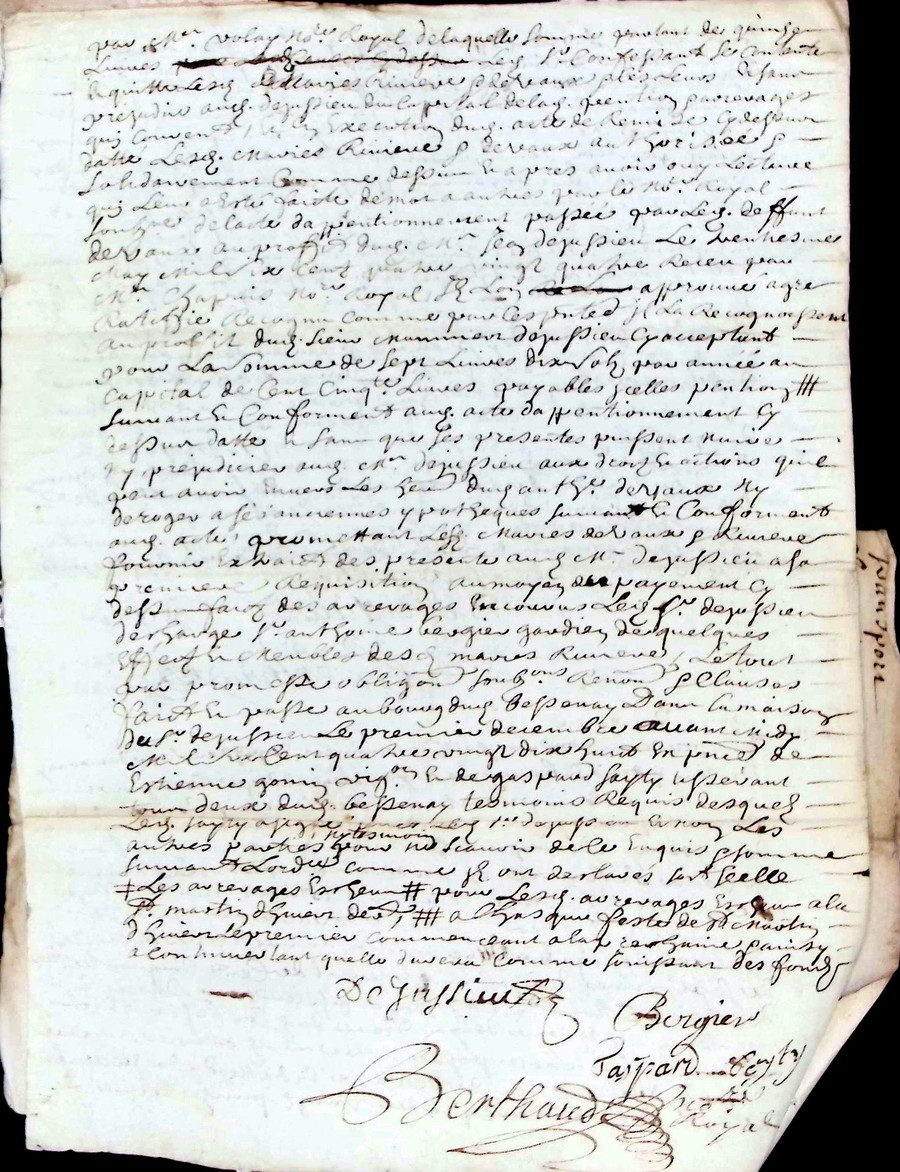 par Me. volay No.re Royal de laquelle somme portant de quinze
Livres Led. Sr. Confessant se contente
et quitte Lesd. Maries Riviere & devaux & les Leurs Et sans
prejudice aud. dejussieu du Capital de lad. pention & arrerages
qui courent Et en Execution dud. acte de Remise cy dessus
datte Lesd. Maries Riviere & devaux authorisée &
solidairement Comme dessus Et apres avoir ouy Lecture
qui Leur a este faicte de mot a autres par le No.re Royal
soubz.ne de lacte dappentionnement passée par Led. deffunt
devaux au proffit dud. Me. Jean dejussieu Le trentiesme
May Mil six Cent quatre vingt quatre Receu par
Me. Chapuis No.re Royal Ilz Lont approuvé agreé
Ratiffie Recognu comme par Ces pntes Ilz La Recognoissent
au proffit dud. sieur dejussieu Cy acceptant
pour La somme de sept Livres dix solz par année au
Capital de Cent Cinq.te Livres payables Icelles pention #
suivant et Conformem.t aud. acte dappentionnement cy
dessus datte et sans que ses presentes puissent nuire
ny prejudicier aud. Me. dejussieu aux droits et actions quil
peut avoir Envers Les her. dud. anth.e devaux Ny
deroger a ses anciennes ypotheques suivant et Conforment
aud. acte promettant Lesd. Maries devaux & Riviere
fournir Extraict des presente aud. Me. dejussieu a sa
premiere Requisition au moyen du payement cy
dessus faict des arrerages Encourus Led. Sr. dejussieu
descharge Sr. anthoine bergier gardien de quelques
Effect et Meubles desd. maries Riviere Le tout
par promesse obligaon soubz.ons Renon & Clauses
faict et passe au bourg dud. bessenay Dans la maison
du Sr. dejussieu Le premier decembre avant Midy
Mil six Cent quatre vingt dix huict En pnce de
Estienne gonin vig.on et de gaspard sayty
tous deux dud. bessenay tesmoins Requis desquelz
Led. sayty a signé avec Led. Sr. dejussieu Et non Les
autres parties ny tesmoin pour ne scavoir de le Enquis & somme
suivant Lord.ce comme Ilz ont declarés
# Les arrerages Escheus # pour Lesd. arrerages Escheus a la
St. martin dhiver # a Chasque feste de St. Martin
dhiver le premier commenceant a la prochaine & ainsy
a continuer tant quelle durera comme jouissant des fondz
DeJussieu
Bergier
Gaspar Seyty
Berthaud No.re Royal